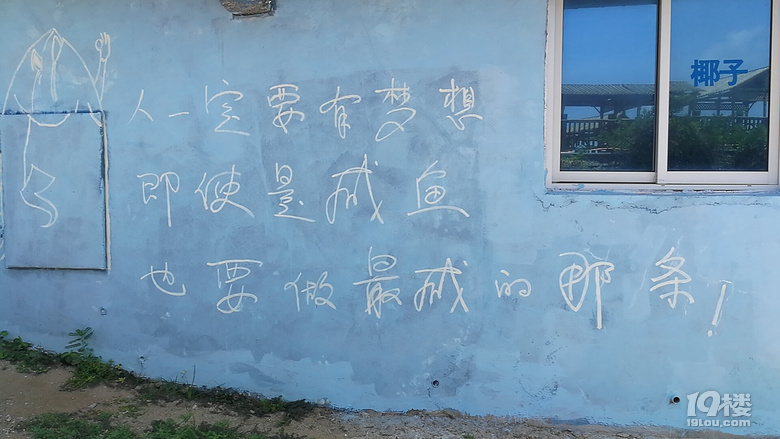 椰子
人一定要有梦想
即使是咸鱼
也要做最咸的那条!
19楼
19lou.com